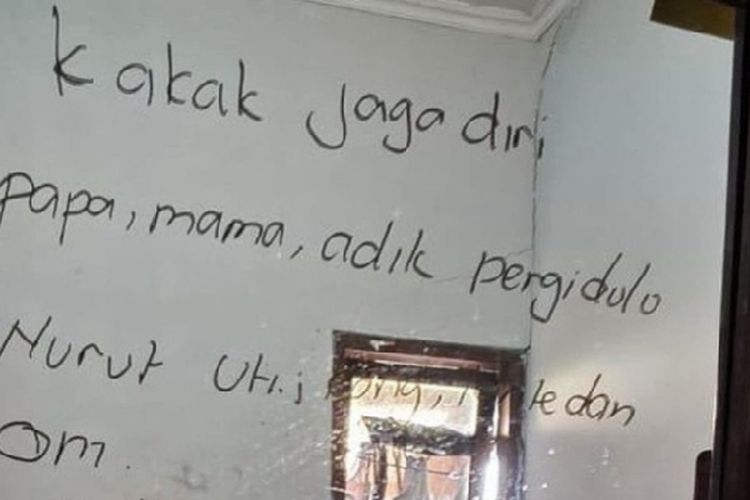 Kakak jaga diri
papa, mama, adik pergi dulo
Nurut Uti, kung, te dan
Om.